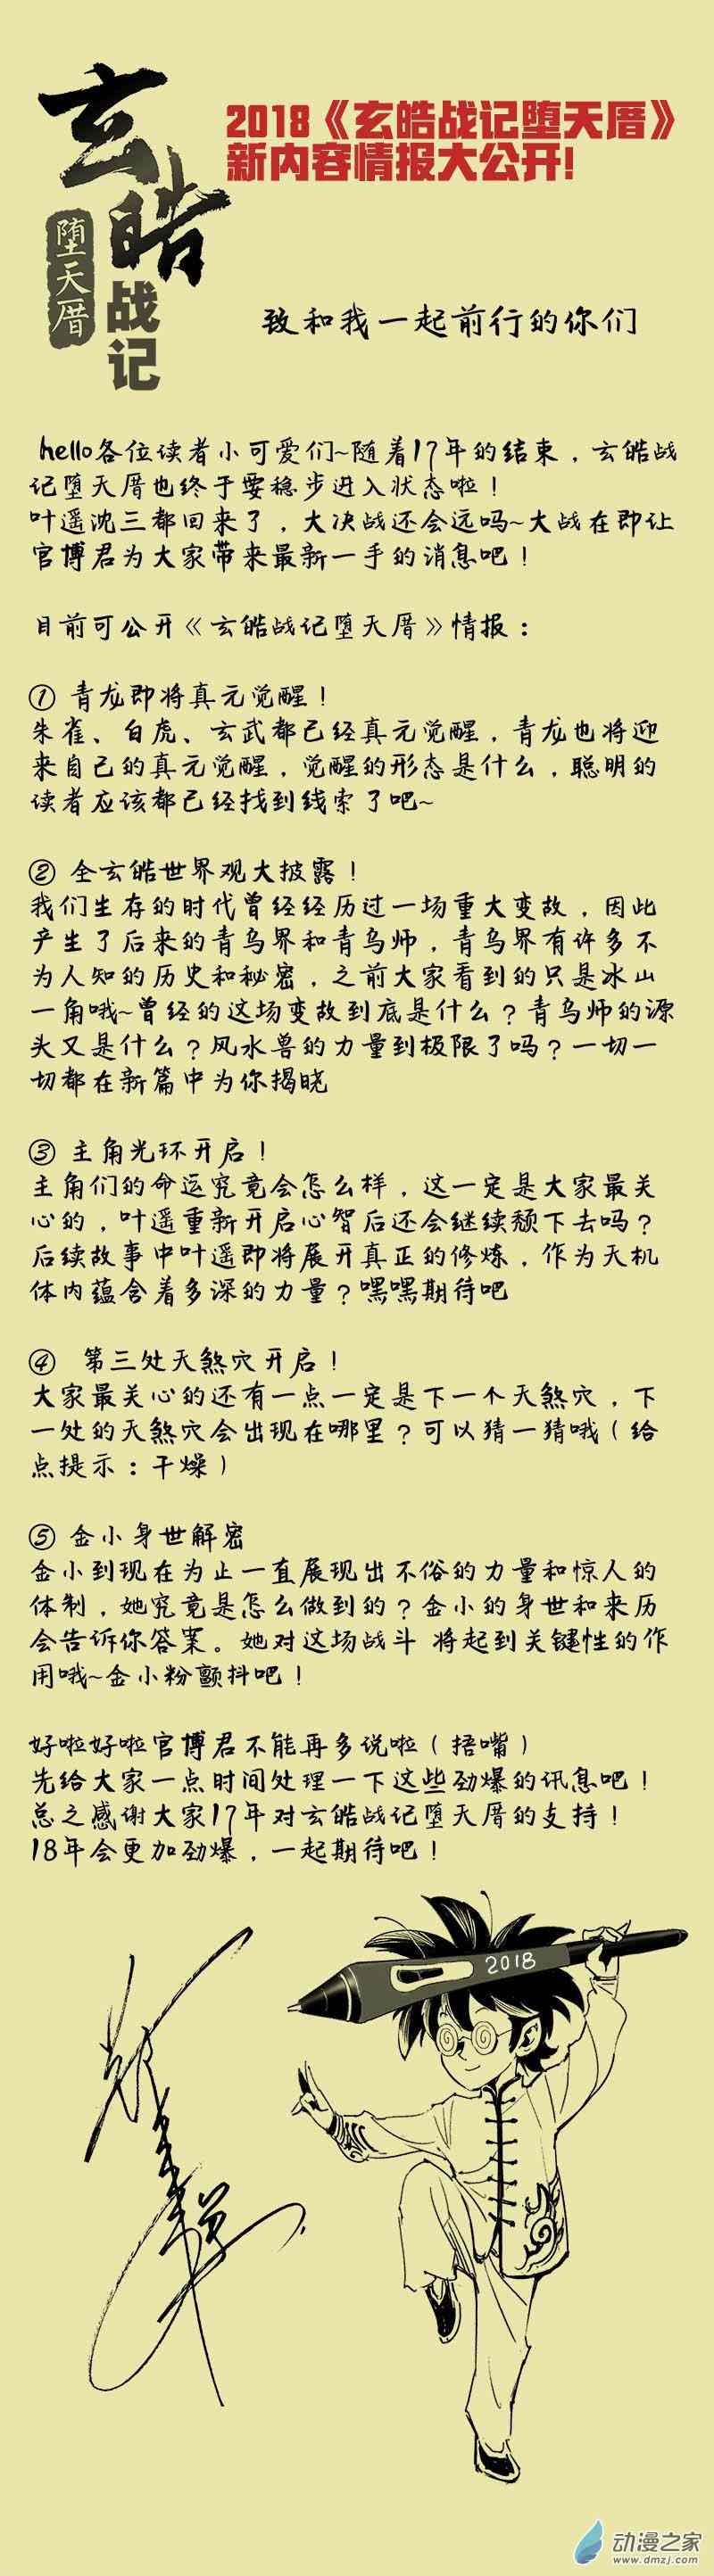 玄皓战记
堕天厝
2018《玄皓战记堕天厝》
新内容情报大公开!
致和我一起前行的你们
hello各位读者小可爱们~随着17年的结束，玄皓战
记堕天厝也终于要稳步进入状态啦！
叶遥沈三都回来了，大决战还会远吗~大战在即让
官博君为大家带来最新一手的消息吧！
目前可公开《玄皓战记堕天厝》情报：
① 青龙即将真元觉醒！
朱雀、白虎、玄武都已经真元觉醒，青龙也将迎
来自己的真元觉醒，觉醒的形态是什么，聪明的
读者应该都已经找到线索了吧~
② 全玄皓世界观大披露！
我们生存的时代曾经经历过一场重大变故，因此
产生了后来的青乌界和青乌师，青乌界有许多不
为人知的历史和秘密，之前大家看到的只是冰山
一角哦~曾经的这场变故到底是什么？青乌师的源
头又是什么？风水兽的力量到极限了吗？一切一
切都在新篇中为你揭晓
③ 主角光环开启！
主角们的命运究竟会怎么样，这一定是大家最关
心的，叶遥重新开启心智后还会继续颓下去吗？
后续故事中叶遥即将展开真正的修炼，作为天机
体内蕴含着多深的力量？嘿嘿期待吧
④ 第三处天煞穴开启！
大家最关心的还有一点一定是下一个天煞穴，下
一处的天煞穴会出现在哪里？可以猜一猜哦（给
点提示：干燥）
⑤ 金小身世解密
金小到现在为止一直展现出不俗的力量和惊人的
体制，她究竟是怎么做到的？金小的身世和来历
会告诉你答案。她对这场战斗 将起到关键性的作
用哦~金小粉颤抖吧！
好啦好啦官博君不能再多说啦（捂嘴）
先给大家一点时间处理一下这些劲爆的讯息吧！
总之感谢大家17年对玄皓战记堕天厝的支持！
18年会更加劲爆，一起期待吧！
2018
动漫之家
www.dmzj.com